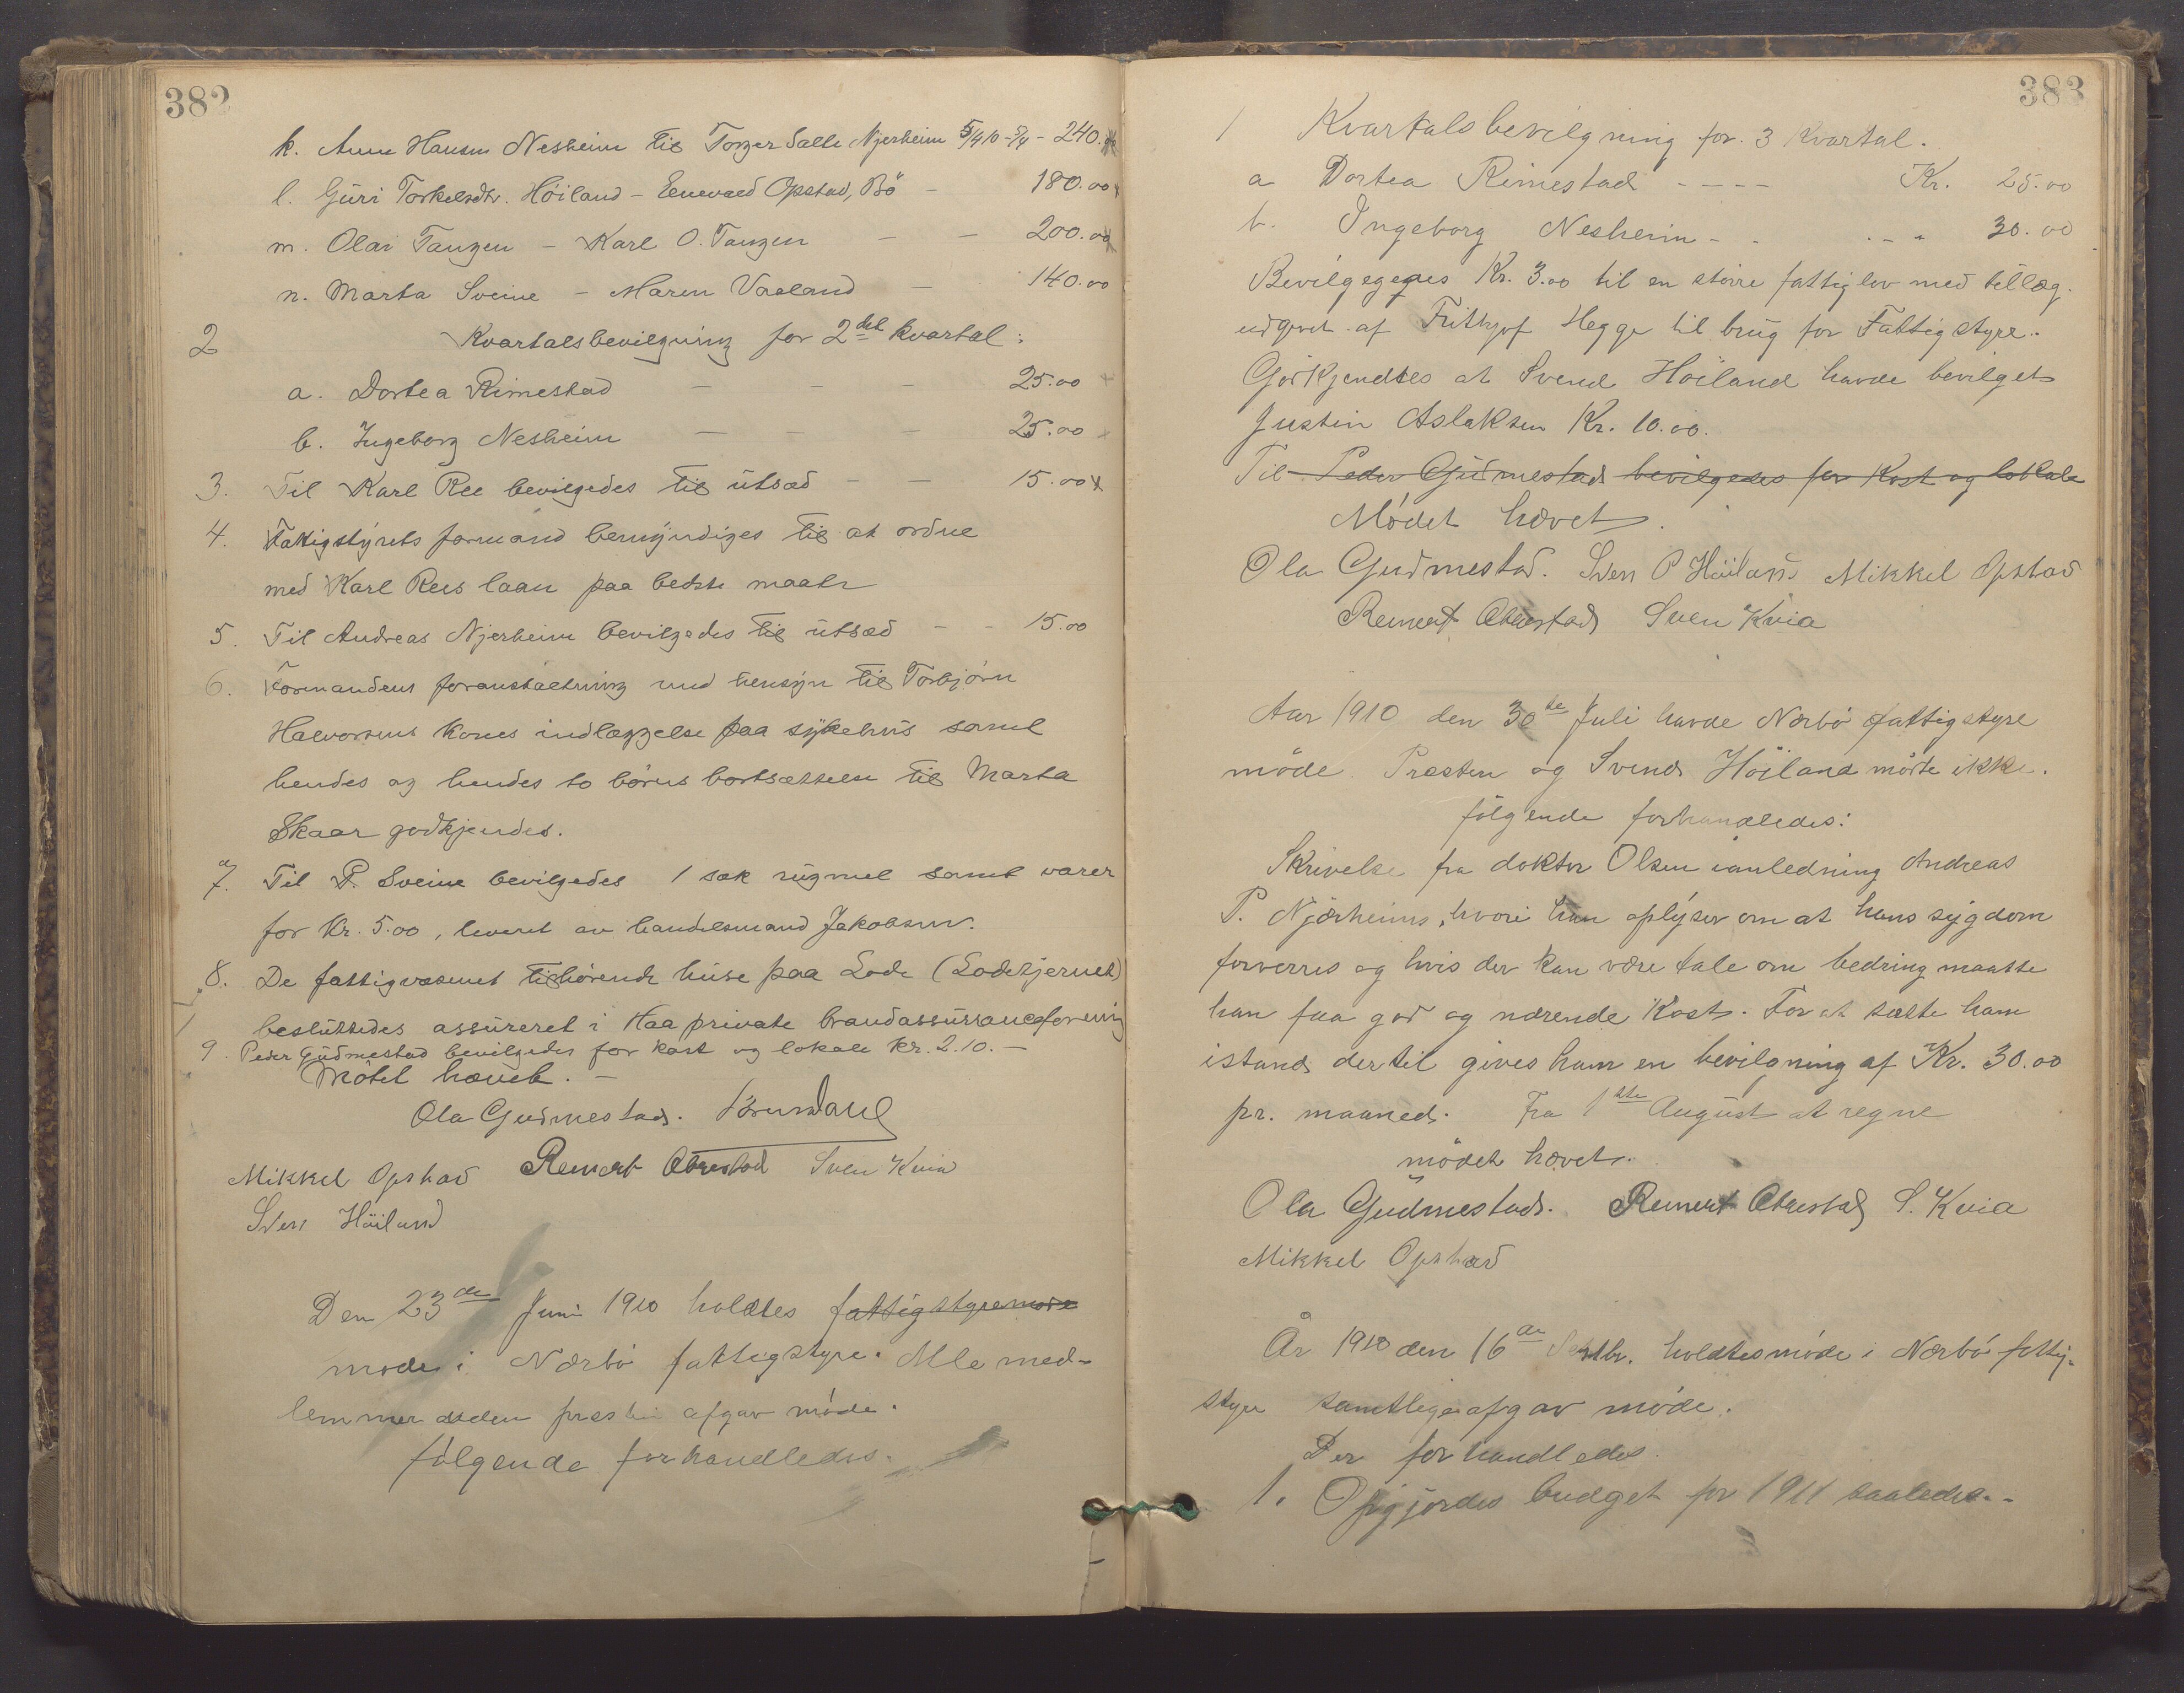 382
k. Anne Hansen Nesheim til Torger Salte Njerheim 5/4 10 - 5/4 - 240.00
l. Guri Torkelsdtr. Höiland - Enevald Opstad, Bö - 180.00
m. Olai Tangen - Karl O. Tangen - - 200.00
n. Marta Sveine - Maren Vaaland - 140.00
2 Kvartalsbevilgning for 2det kvartal:
a. Dortea Rimestad - - - 25.00
b. Ingeborg Nesheim - - - 25.00
3. Til Karl Ree bevilgedes til utsæd - - 15.00
4. Fattigstyrets formand bemyndiges til at ordne
med Karl Rees laan paa bedste maate
5. Til Andreas Njerheim bevilgedes til utsæd - - 15.00
6. Formandens foranstaltning med hensyn til Torbjörn
Halvorsens kones indlæggelse paa sykehus samt
hendes og hendes to börns bortsættelse til Marta
Skaar godkjendes.
7. Til P. Sveine bevilgedes 1 sæk rugmel samt varer
for Kr. 5.00, leveret av handelsmand Jakobsen.
8. De fattigvæsenet tilhörende huse paa Lode (Lodetjernet)
besluttedes assureret i Haa private brandassuranceforening
9. Peder Gudmestad bevilgedes for kost og lokale Kr. 2.10.-
Mötet hævet. -
Ola Gudmestad. Brundahl
Mikkel Opstad Remert Obrestad Sven Kvia
Sven Höiland
Den 23de Juni 1910 holdtes fattigstyremøde
møde i Nærbö fattigstyre. Alle med-
lemmer uden presten afgav möde.
fölgende forhandledes.
383
1 Kvartalsbevilgning for 3 Kvartal.
a Dortea Rimestad - - - - Kr. 25.00
b. Ingeborg Nesheim - - - - - 30.00
Bevilgegedes Kr. 3.00 til en större fattiglov med tillæg.
udgivet af Frithjof Hegge til brug for Fattigstyre.
Godkjendtes at Svend Höiland havde bevilget
Justin Aslaksen Kr. 10.00.
Til Peder Gudmestad bevilgedes for Kost og lokale
Mödet hævet.
Ola Gudmestad. Sven P Höiland Mikkel Opstad
Remert Obrestad Sven Kvia
Aar 1910 den 30te Juli havde Nærbö fattigstyre
möde. Presten og Svend Höiland mötte ikke.
fölgende forhandledes:
Skrivelse fra doktor Olsen ianledning Andreas
P. Njærheims, hvori han oplyser om at hans sygdom
forverres og hvis der kan være tale om bedring maatte
han faa god og nærende Kost. For at sætte ham
istand dertil gives ham en bevilgning af Kr. 30.00
pr. maaned. Fra 1ste August at regne
mödet hævet.
Ola Gudmestad. Remert Obrestad S. Kvia
Mikkel Opstad
År 1910 den 16de Septbr. holdtes möde i Nærbö fattig-
styre samtlige afgav möde.
Der forhandledes.
1. Opgjordes budget for 1911 saaledes.-